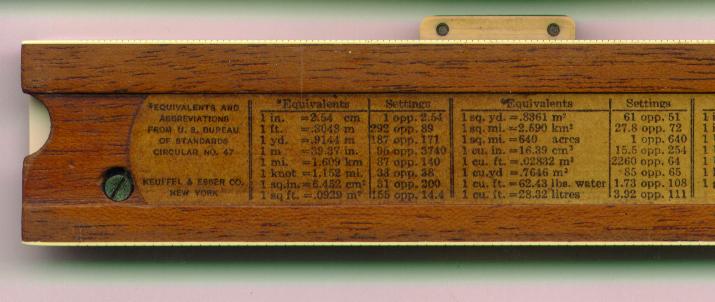 *EQUIVALENTS AND
ABBREVIATIONS
FROM U. S. BUREAU
OF STANDARDS
CIRCULAR NO. 47
KEUFFEL & ESSER CO.
NEW YORK
*Equivalents Settings
1 in. =2.54 cm 1 opp. 2.54
1 ft. =.3048 m 292 opp. 89
1 yd. =.9144 m 187 opp. 171
1 m =39.37 in. 95 opp. 3740
1 mi. =1.609 km 87 opp. 140
1 knot =1.152 mi. 33 opp. 38
1 sq.in.=6.452 cm² 31 opp. 200
1 sq ft. =.0929 m² 155 opp. 14.4
*Equivalents Settings
1 sq. yd. =.8361 m² 61 opp. 51
1 sq. mi. =2.590 km² 27.8 opp. 72
1 sq. mi. =640 acres 1 opp. 640
1 cu. in. =16.39 cm³ 15.5 opp. 254
1 cu. ft. =.02832 m³ 2260 opp. 64
1 cu.yd =.7646 m³ 85 opp. 65
1 cu. ft. =62.43 lbs. water 1.73 opp. 108
1 cu. ft. =28.32 litres 3.92 opp. 111